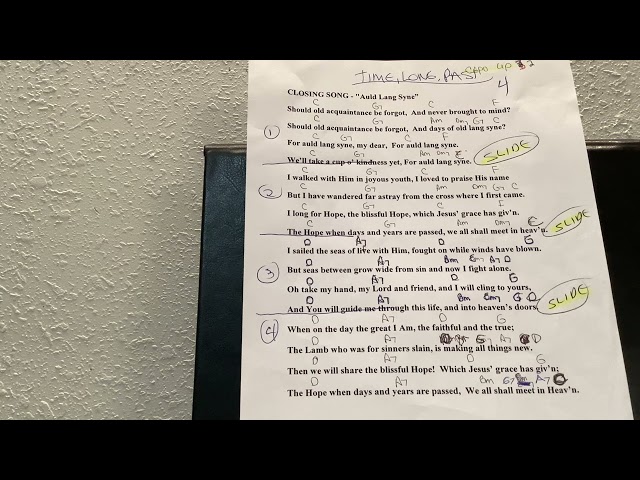 TIME, LONG, PAST CAPO UP 2
4
CLOSING SONG - "Auld Lang Syne"
C G7 C F
Should old acquaintance be forgot, And never brought to mind?
C G7 Am Dm7 G7 C
1 Should old acquaintance be forgot, And days of old lang syne?
C G7 C F
For auld lang syne, my dear, For auld lang syne. SLIDE
C G7 Am Dm7 C
We'll take a cup o' kindness yet, For auld lang syne.
C G7 C F
I walked with Him in joyous youth, I loved to praise His name
C G7 Am Dm7 G7 C
2 But I have wandered far astray from the cross where I first came.
C G7 C F
I long for Hope, the blissful Hope, which Jesus' grace has giv'n.
C G7 Am Dm7 C SLIDE
The Hope when days and years are passed, we all shall meet in heav'n.
D A7 D G
I sailed the seas of life with Him, fought on while winds have blown.
D A7 Bm Em7 A7 D
3 But seas between grow wide from sin and now I fight alone.
D A7 D G
Oh take my hand, my Lord and friend, and I will cling to yours,
D A7 Bm Em7 G D SLIDE
And You will guide me through this life, and into heaven's doors.
D A7 D G
4 When on the day the great I Am, the faithful and the true;
D A7 G A7 D
The Lamb who was for sinners slain, is making all things new.
D A7 D G
Then we will share the blissful Hope! Which Jesus' grace has giv'n;
D A7 Bm G7 A7
The Hope when days and years are passed, We all shall meet in Heav'n.